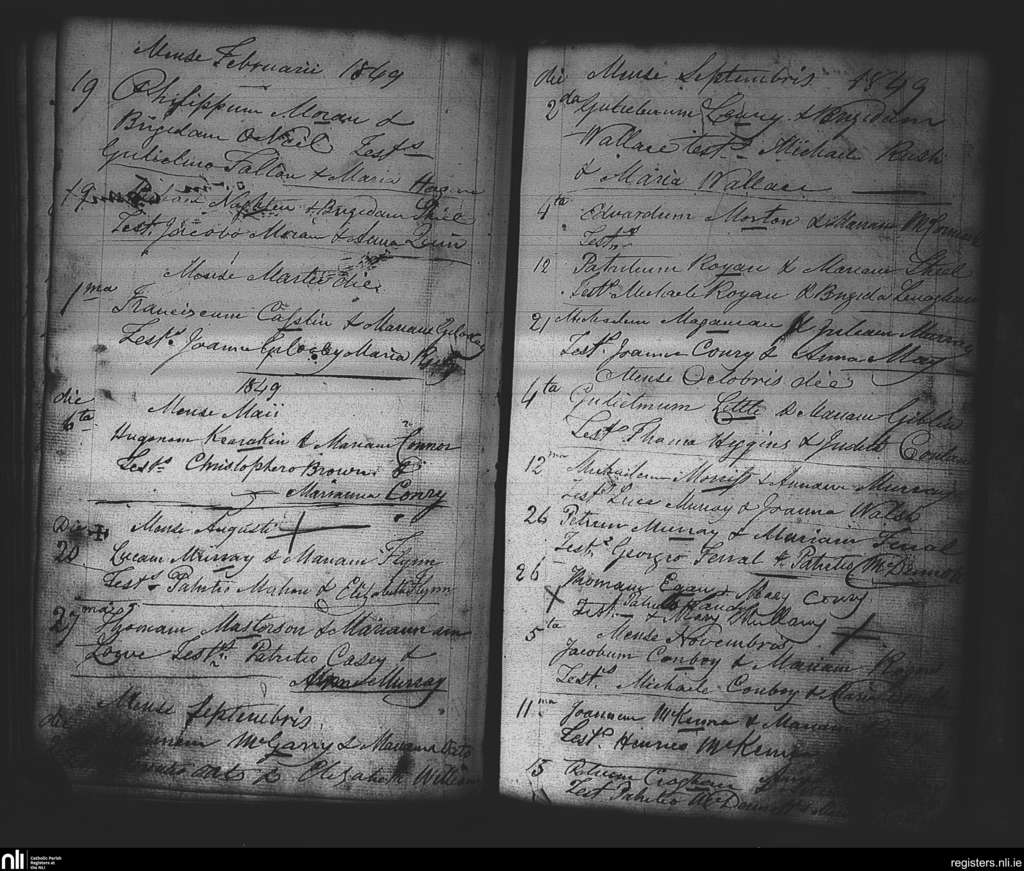 Mense Februarii 1849
19 Philippum Moran &
Brigidam O Neil Test.s
Gulielmo Fallon & Maria
19 Naghten & Brigidam Shiel
Test. Jacobo Moran & Anna Quin
Mense Martii die
1ma Franciscum Caslin & Mariam
Test.s Joanne Maria
1849
die Mense Maii
6ta Hugonem & Mariam Connor
Test.s Christophero Brown &
Marianna Conry
Die Mense Augusti
20 Lucam Murray & Mariam Flynn
Test.s Patritio Mahon & Elizabetha Flynn
27ma Thomam Masterson & Mariannam
Logue Test.s Patritio Casey &
Anna Murray
Mense Septembris
die McGarry & Mariana Oats
Oats & Elizabeth William
die Mense Septembris 1849
2da Gulielmum Leury & Brigidam
Wallace Test.s Michaele Rush
& Maria Wallace
4ta Edvardum Morton & Mariam McCormick
Test.s
12 Patritium Rogan & Mariam Shiel
Test.s Michaele Rogan & Brigida Lenaghan
21 Michaelem Magawran & Murray
Test.s Joanne Conry & Anna May
Mense Octobris die
4ta Gulielmum Little & Mariam Giblin
Test.s Thoma Higgins & Judith
12ma Michaelem Morris & Annam Murray
Test.s Luca Murray & Joanna Walsh
26 Petrum Murray & Mariam Ferral
Test.s Georgio Ferral & Patritio McDermott
26 Thomam Egan & Mary Conry
Test. Patritio & Mary Mullany
Mense Novembris
5ta Jacobum Conboy & Mariam
Test.s Michaele Conboy & Maria
11ma Joannem McKenna & Mariam
Test.s Henrico McKenna
15 Petrum
Test Patritio McDermott
nli
Catholic Parish
Registers at
the NLI
registers.nli.ie